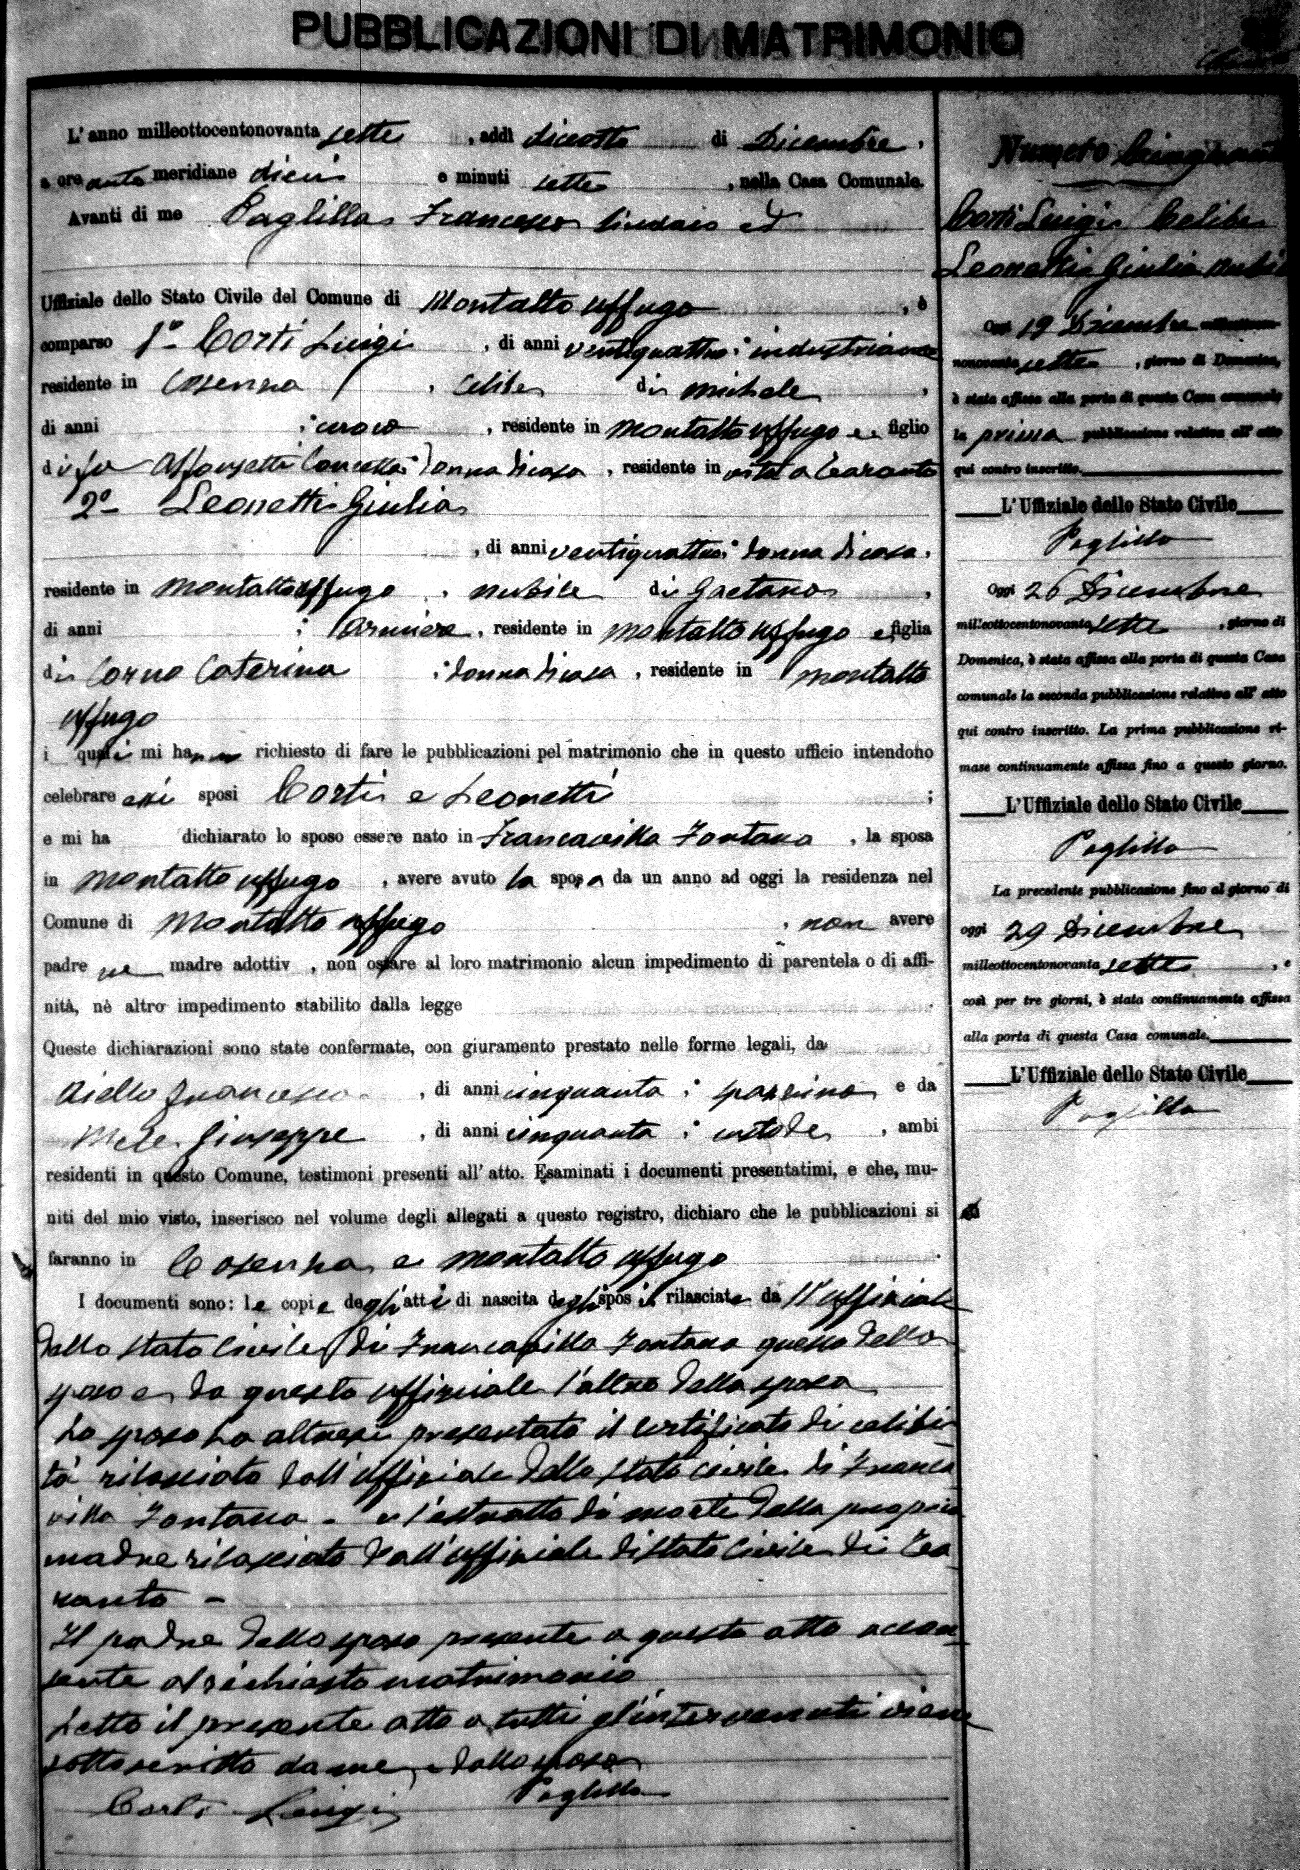 PUBBLICAZIONI DI MATRIMONIO
L'anno milleottocentonovantasette, addì diciotto di Dicembre,
a ore anti meridiane dieci e minuti sette, nella Casa Comunale.
Avanti di me Paglilla Francesco Sindaco ed
Uffiziale dello Stato Civile del Comune di Montalto Uffugo, è
comparso 1º Corti Luigi, di anni ventiquattro; industriante
residente in Cosenza, celibe di Michele,
di anni ; residente in Montalto Uffugo e figlio
di fu Concetta; donna di casa, residente in vita a Taranto
2º Leonetti Giulia
, di anni ventiquattro; donna di casa,
residente in Montalto Uffugo, nubile di Gaetano,
di anni ; Armiere, residente in Montalto Uffugo e figlia
di Corno Caterina; donna di casa, residente in Montalto
Uffugo
i quali mi hanno richiesto di fare le pubblicazioni pel matrimonio che in questo ufficio intendono
celebrare essi sposi Corti e Leonetti;
e mi ha dichiarato lo sposo essere nato in Francavilla Fontana, la sposa
in Montalto Uffugo, avere avuto la sposa da un anno ad oggi la residenza nel
Comune di Montalto Uffugo, non avere
padre nè madre adottiv, non ostare al loro matrimonio alcun impedimento di parentela o di affi-
nità, nè altro impedimento stabilito dalla legge
Queste dichiarazioni sono state confermate, con giuramento prestato nelle forme legali, da
Aiello Francesco, di anni cinquanta; spazzino e da
Mele Giuseppe, di anni cinquanta; custode, ambi
residenti in questo Comune, testimoni presenti all'atto. Esaminati i documenti presentatimi, e che, mu-
niti del mio visto, inserisco nel volume degli allegati a questo registro, dichiaro che le pubblicazioni si
faranno in Cosenza e Montalto Uffugo.
I documenti sono: le copie degli atti di nascita degli sposi rilasciate da ll'uffiziale
dello stato Civile di Francavilla Fontana quella dello
sposo e da questo uffiziale l'altra della sposa
Lo sposo ha altresì presentato il certificato di celibi-
tà rilasciato dall'uffiziale dello stato civile di Franca
villa Fontana - e l'estratto di morte della propria
madre rilasciato dall'uffiziale di stato Civile di Ta
ranto -
Il padre dello sposo presente a questo atto accon-
sente al richiesto matrimonio
Letto il presente atto a tutti gl'intervenuti viene
sottoscritto da me e dallo sposo
Corti Luigi Paglilla
Numero
Corti Luigi Celibe
Leonetti Giulia Nubile
Oggi 19 Dicembre milleottocento-
novantasette, giorno di Domenica,
è stata affissa alla porta di questa Casa comunale
la prima pubblicazione relativa all'atto
qui contro inscritto.
L'Uffiziale dello Stato Civile
Paglilla
Oggi 26 Dicembre
milleottocentonovantasette, giorno di
Domenica, è stata affissa alla porta di questa Casa
comunale la seconda pubblicazione relativa all'atto
qui contro inscritto. La prima pubblicazione ri-
mase continuamente affissa fino a questo giorno.
L'Uffiziale dello Stato Civile
Paglilla
La precedente pubblicazione fino al giorno di
oggi 29 Dicembre
milleottocentonovantasette, e
così per tre giorni, è stata continuamente affissa
alla porta di questa Casa comunale.
L'Uffiziale dello Stato Civile
Paglilla